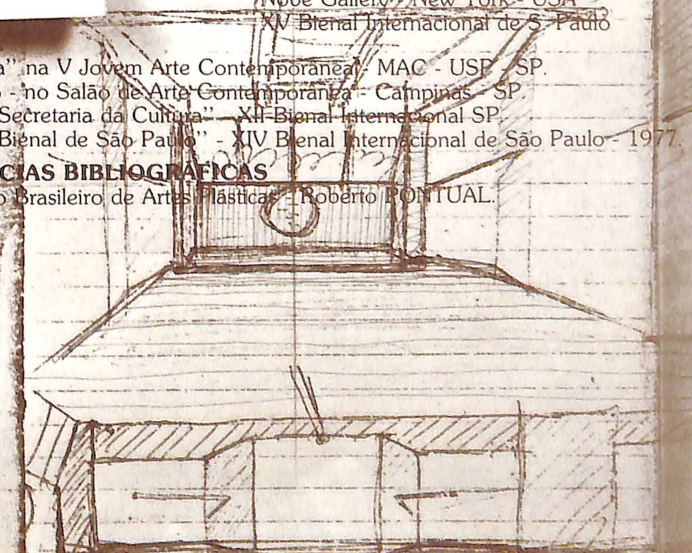 Nobé Gallery - New York - USA
XV Bienal Internacional de S. Paulo
a" na V Jovem Arte Contemporânea - MAC - USP - SP.
o - no Salão de Arte Contemporânea - Campinas - SP.
Secretaria da Cultura" - XII Bienal Internacional SP.
Bienal de São Paulo" - XIV Bienal Internacional de São Paulo - 1977.
CIAS BIBLIOGRÁFICAS
o Brasileiro de Artes Plásticas - Roberto PONTUAL.